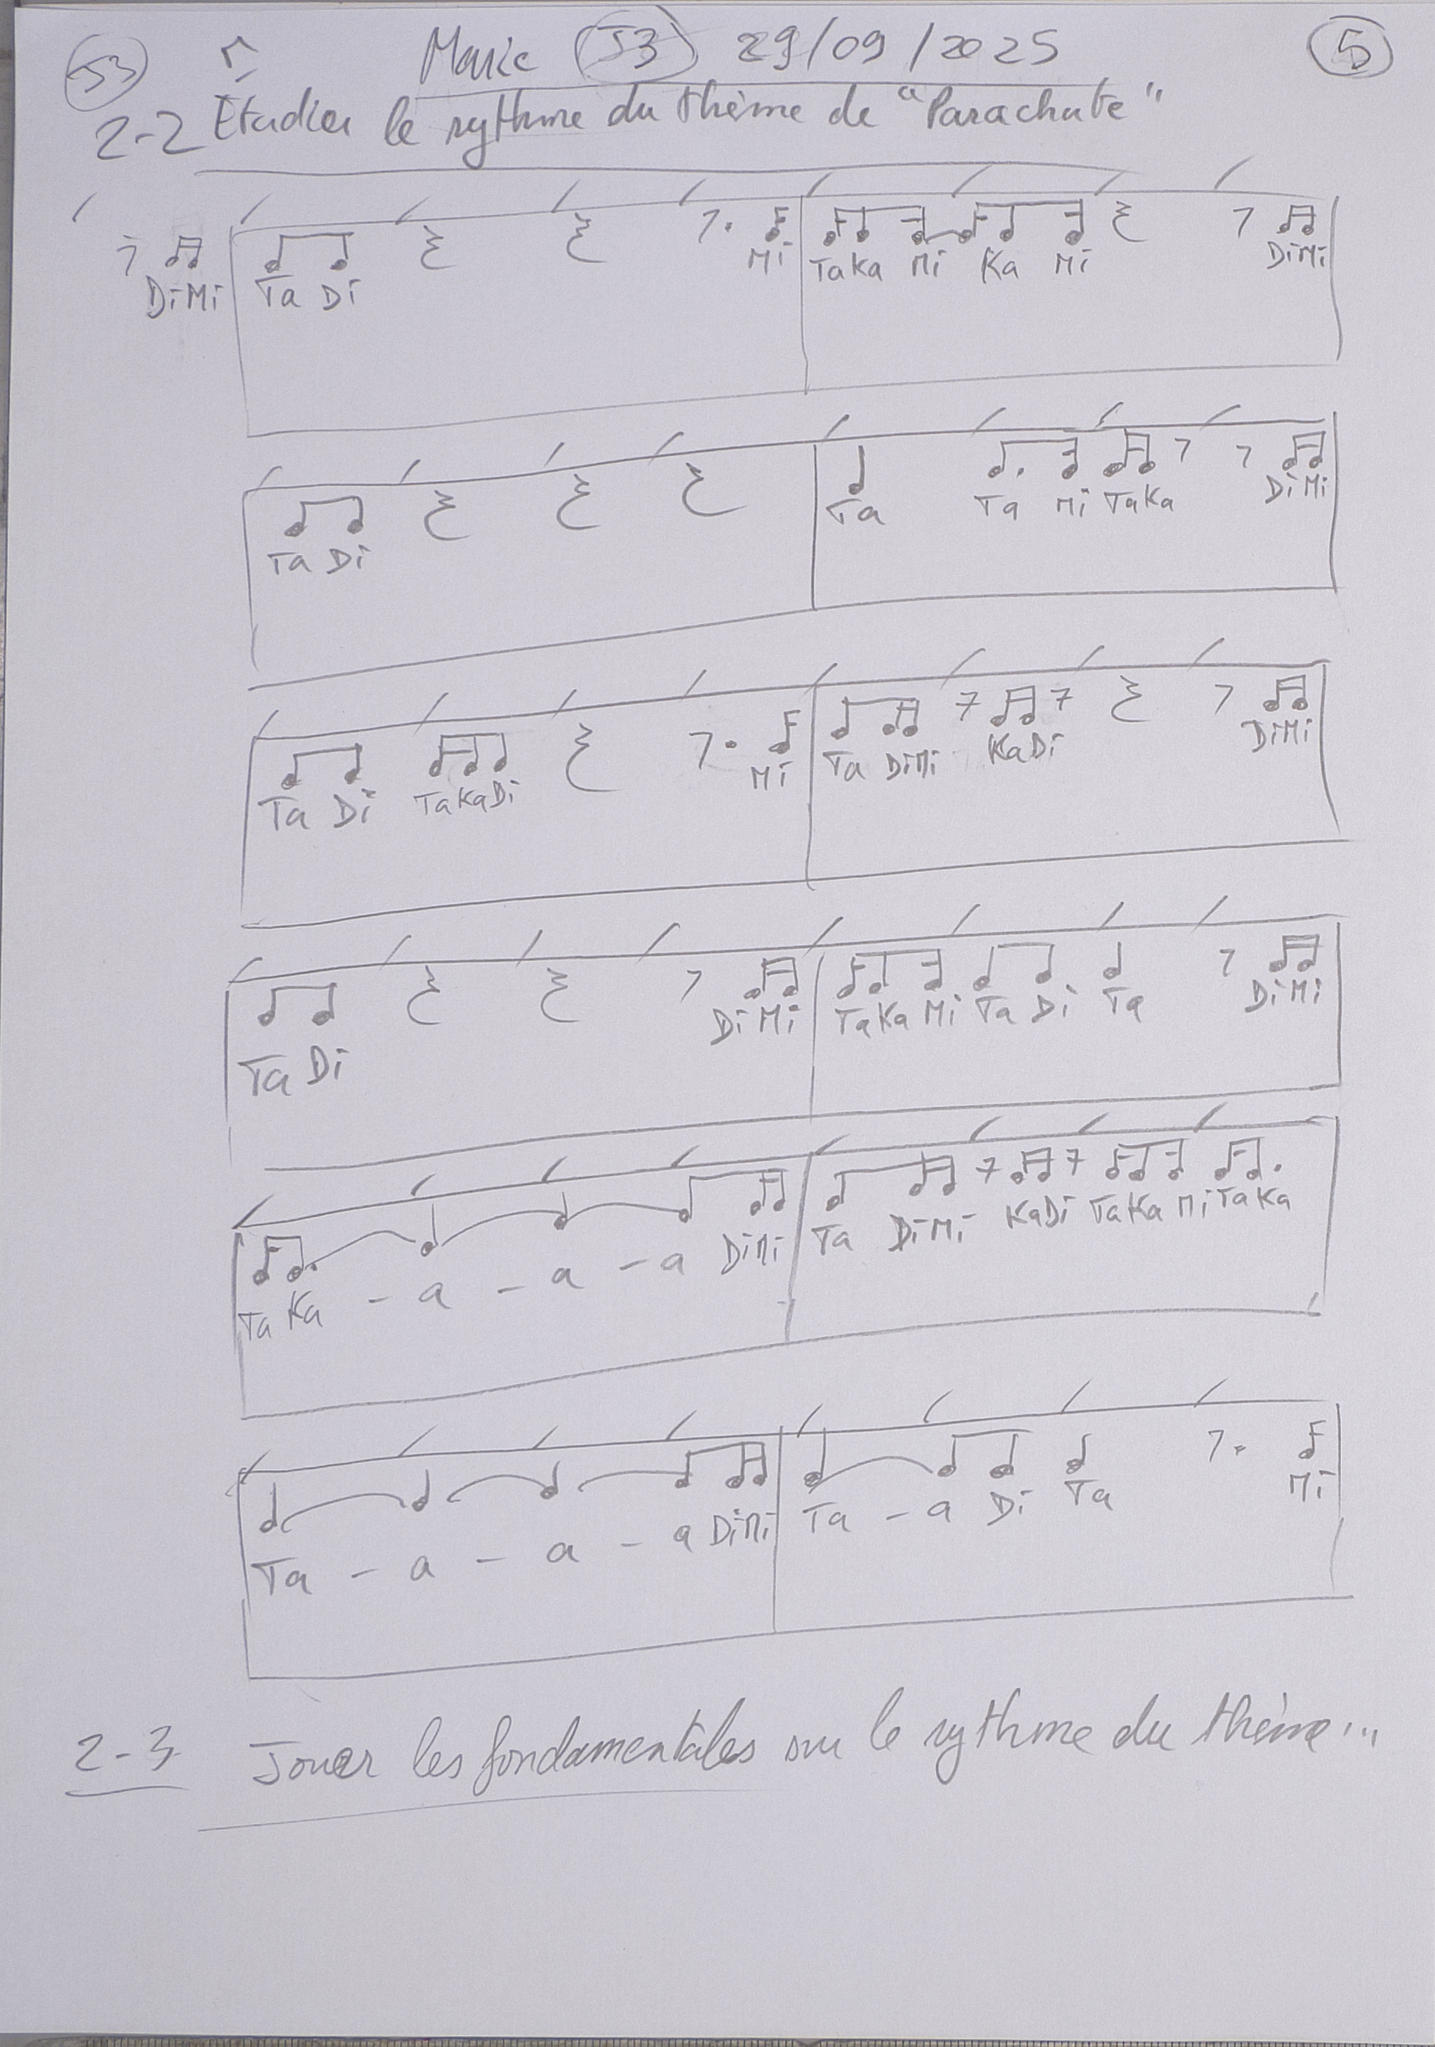 J3 Marie J3 29/09/2025 5
2-2 Etudier le rythme du thème de "Parachute"
DiMi Ta Di Mi TaKa Mi Ka Mi DiMi
Ta Di Ta Ta Mi TaKa DiMi
Ta Di TaKaDi Mi Ta DiMi KaDi DiMi
Ta Di DiMi TaKa Mi Ta Di Ta DiMi
Ta Ka - a - a - a DiMi Ta DiMi KaDi TaKa Mi TaKa
Ta - a - a - a DiMi Ta - a Di Ta Mi
2-3 Jouer les fondamentales sur le rythme du thème...